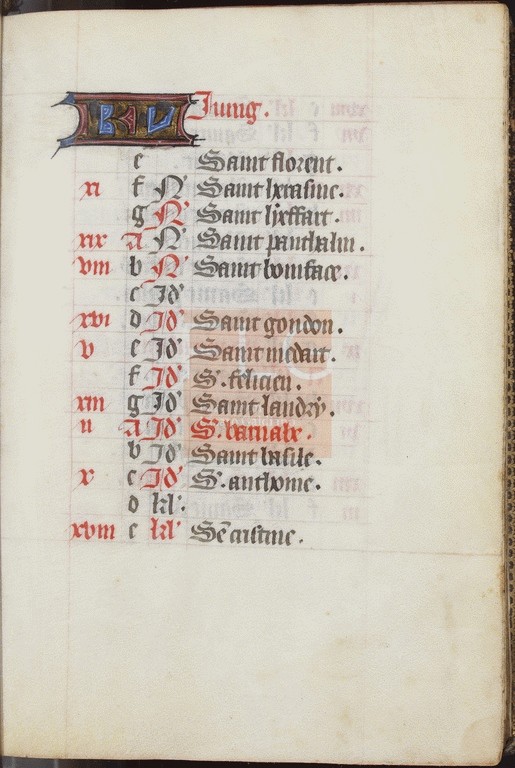 KL Juing.
e Saint florent.
xi f N'
g N' Saint lyeffart.
xix A N' Saint panthalin.
viii b N' Saint boniface.
c Id'
xvi d Id' Saint gondon.
v e Id' Saint medart.
f Id' S'. felicien.
xiii g Id' Saint landry.
ii A Id' S'. barnabe.
b Id' Saint basile.
x c Id' S'. anthoine.
d kl'.
xviii e kl'